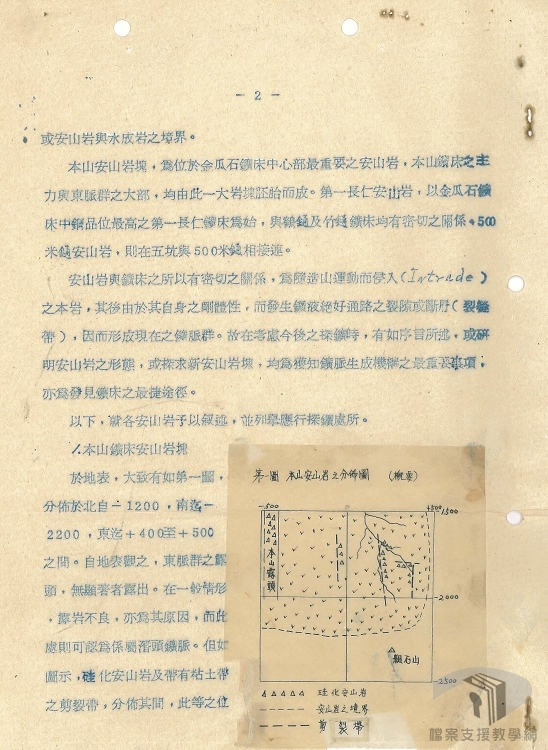 - 2 -
或安山岩與水成岩之境界。
本山安山岩塊，爲位於金瓜石鑛床中心部最重要之安山岩，本山鑛床之主
力與東脈群之大部，均由此一大岩塊胚胎而成。第一長仁安山岩，以金瓜石鑛
床中銅品位最高之第一長仁鑛床爲始，與鶴𨫼及竹𨫼鑛床均有密切之關係。500
米𨫼安山岩，則在五坑與500米𨫼相接近。
安山岩與鑛床之所以有密切之關係，爲隨造山運動而侵入(Intrade)
之本岩，其後由於其自身之剛體性，而發生鑛液絕好通路之裂隙或斷層(裂縫
帶)，因而形成現在之鑛脈群。故在考慮今後之探鑛時，有如序言所述，或研
明安山岩之形態，或探求新安山岩塊，均爲獲知鑛脈生成機構之最重要事項，
亦爲發見鑛床之最捷途徑。
以下，就各安山岩予以叙述，並列舉應行探鑛處所。
1.本山鑛床安山岩塊
於地表，大致有如第一圖，
分佈於北自-1200，南迄-
2200，東迄+400至+500
之間。自地表觀之，東脈群之露
頭，無顯著者露出。在一般情形
，露岩不良，亦爲其原因，而此
處則可認爲係屬潛頭鑛脈。但如
圖示，硅化安山岩及帶有粘土帶
之剪裂帶，分佈其間，此等之位
第一圖 本山安山岩之分佈圖 (概要)
-500
+500
-1500
本山露頭
-2000
觀石山
-2500
硅化安山岩
安山岩之境界
剪裂帶
檔案支援教學網